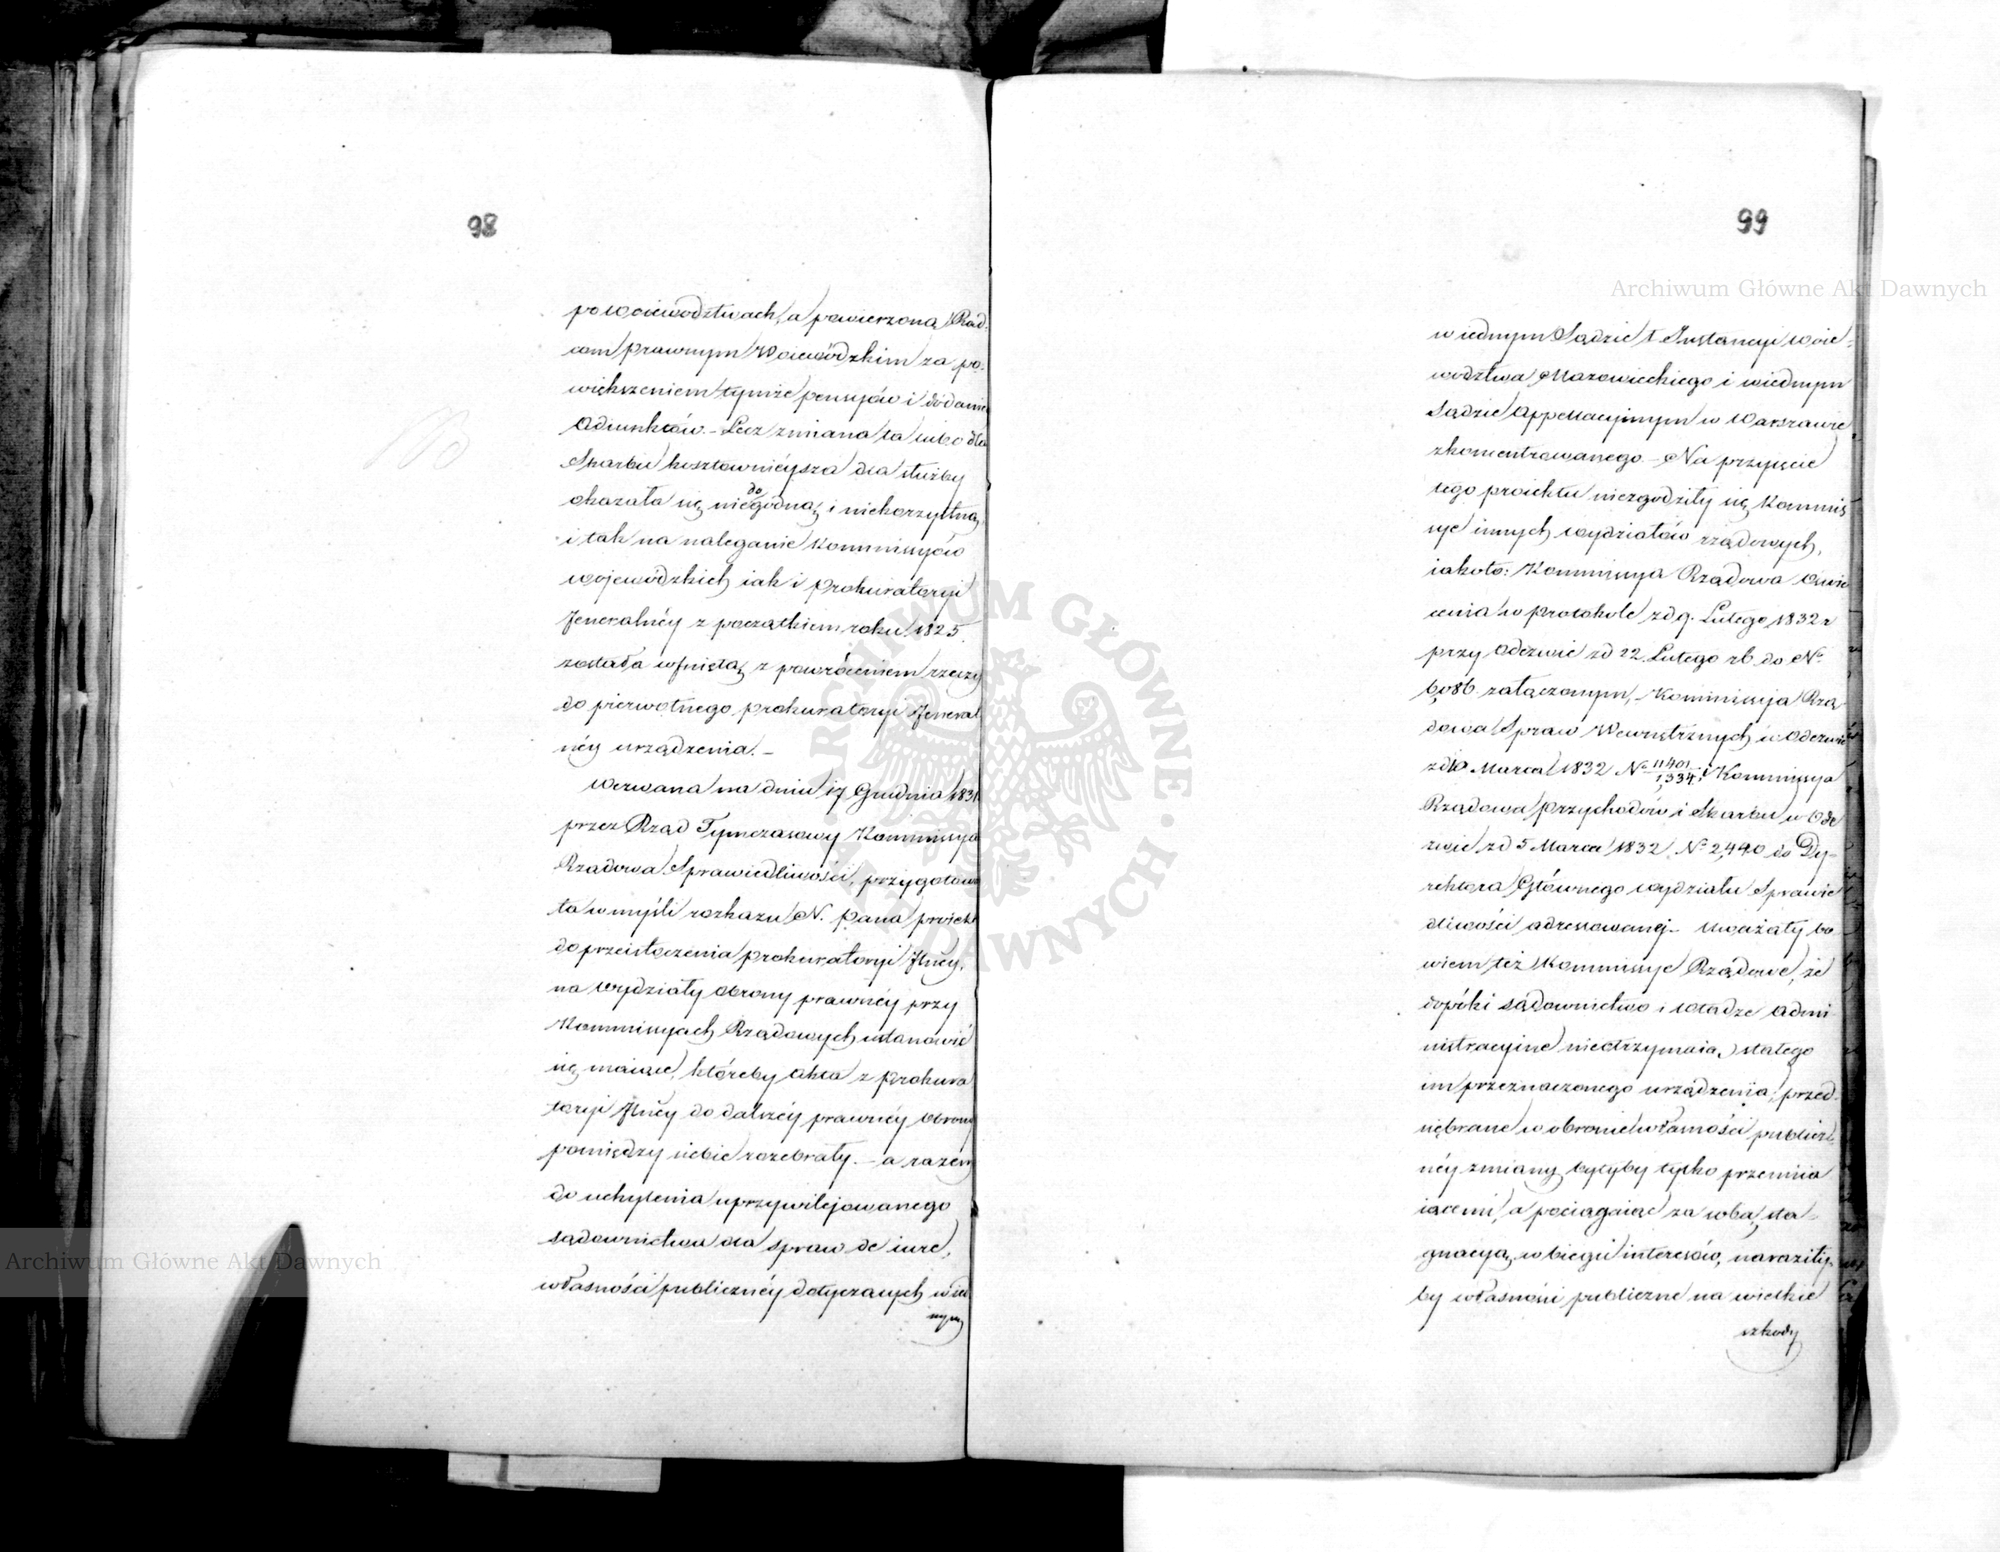 98
po Woiewodztwach, a powierzoną Rad-
com prawnym Woiewódzkim za po-
większeniem tymże pensyów i dodanie
Adiunktów. – Lecz zmiana ta iako dla
Skarbu kosztownieysza dla służby
okazała się niedogodną i niekorzystną,
i tak na naleganie Kommissyów
Wojewódzkich iak i Prokuratoryi
Jeneralnéy z początkiem roku 1825.
została cofniętą z powróceniem rzeczy
do pierwotnego Prokuratoryi Jeneral
néy urządzenia. –
Wezwana na dniu 17 Grudnia 1831
przez Rząd Tymczasowy Kommissya
Rządowa Sprawiedliwości, przygotowa
ła w myśli rozkazu N. Pana proiekt
do przeistoczenia Prokuratoryi Jlnéy,
na Wydziały Obrony prawnéy przy
Kommissyach Rządowych ustanowić
się maiące, któreby Akta z Prokura
toryi Jlnéy do dalszéy prawnéy Obrony
pomiędzy siebie rozebrały. – a razem
do uchylenia uprzywilejowanego
sądownictwa dla spraw de iure,
własności publicznéy dotyczących w ied
nym
99
w iednym Sądzie 1 Instancyi Woie-
wodztwa Mazowieckiego i w iednym
Sądzie Appellacyjnym w Warszawie
zkoncentrowanego. – Na przyięcie
tego proiektu niezgodziły się Kommis
sye innych wydziałów rządowych,
iakoto: Kommissya Rządowa Oświe
cenia w Protokole z d 9. Lutego 1832 r
przy Odezwie z d 22. Lutego r b. do No
6,086. załączonym, – Kommissya Rzą
dowa Spraw Wewnętrznych w Odezwie
z d 10 Marca 1832 No 11401/1,334, i Kommissya
Rządowa Przychodów i Skarbu w Ode
zwie z d 5 Marca 1832 No 2,440 do Dy-
rektora Głównego wydziału Sprawie
dliwości adressowanéj – Uważały bo
wiem też Kommissye Rządowe, że
dopóki sądownictwo i władze Admi-
nistracyine nieotrzymaią stałego
im przeznaczonego urządzenia, przed-
siębrane w obronie własności publicz-
néy zmiany byłyby tylko przemiia
iącemi, a pociągaiąc za sobą sta-
gnacyą w biegu interesów, naraziły-
by własności publiczne na wielkie
szkody
Archiwum Główne Akt Dawnych
Archiwum Główne Akt Dawnych
ARCHIWUM GŁÓWNE AKT DAWNYCH